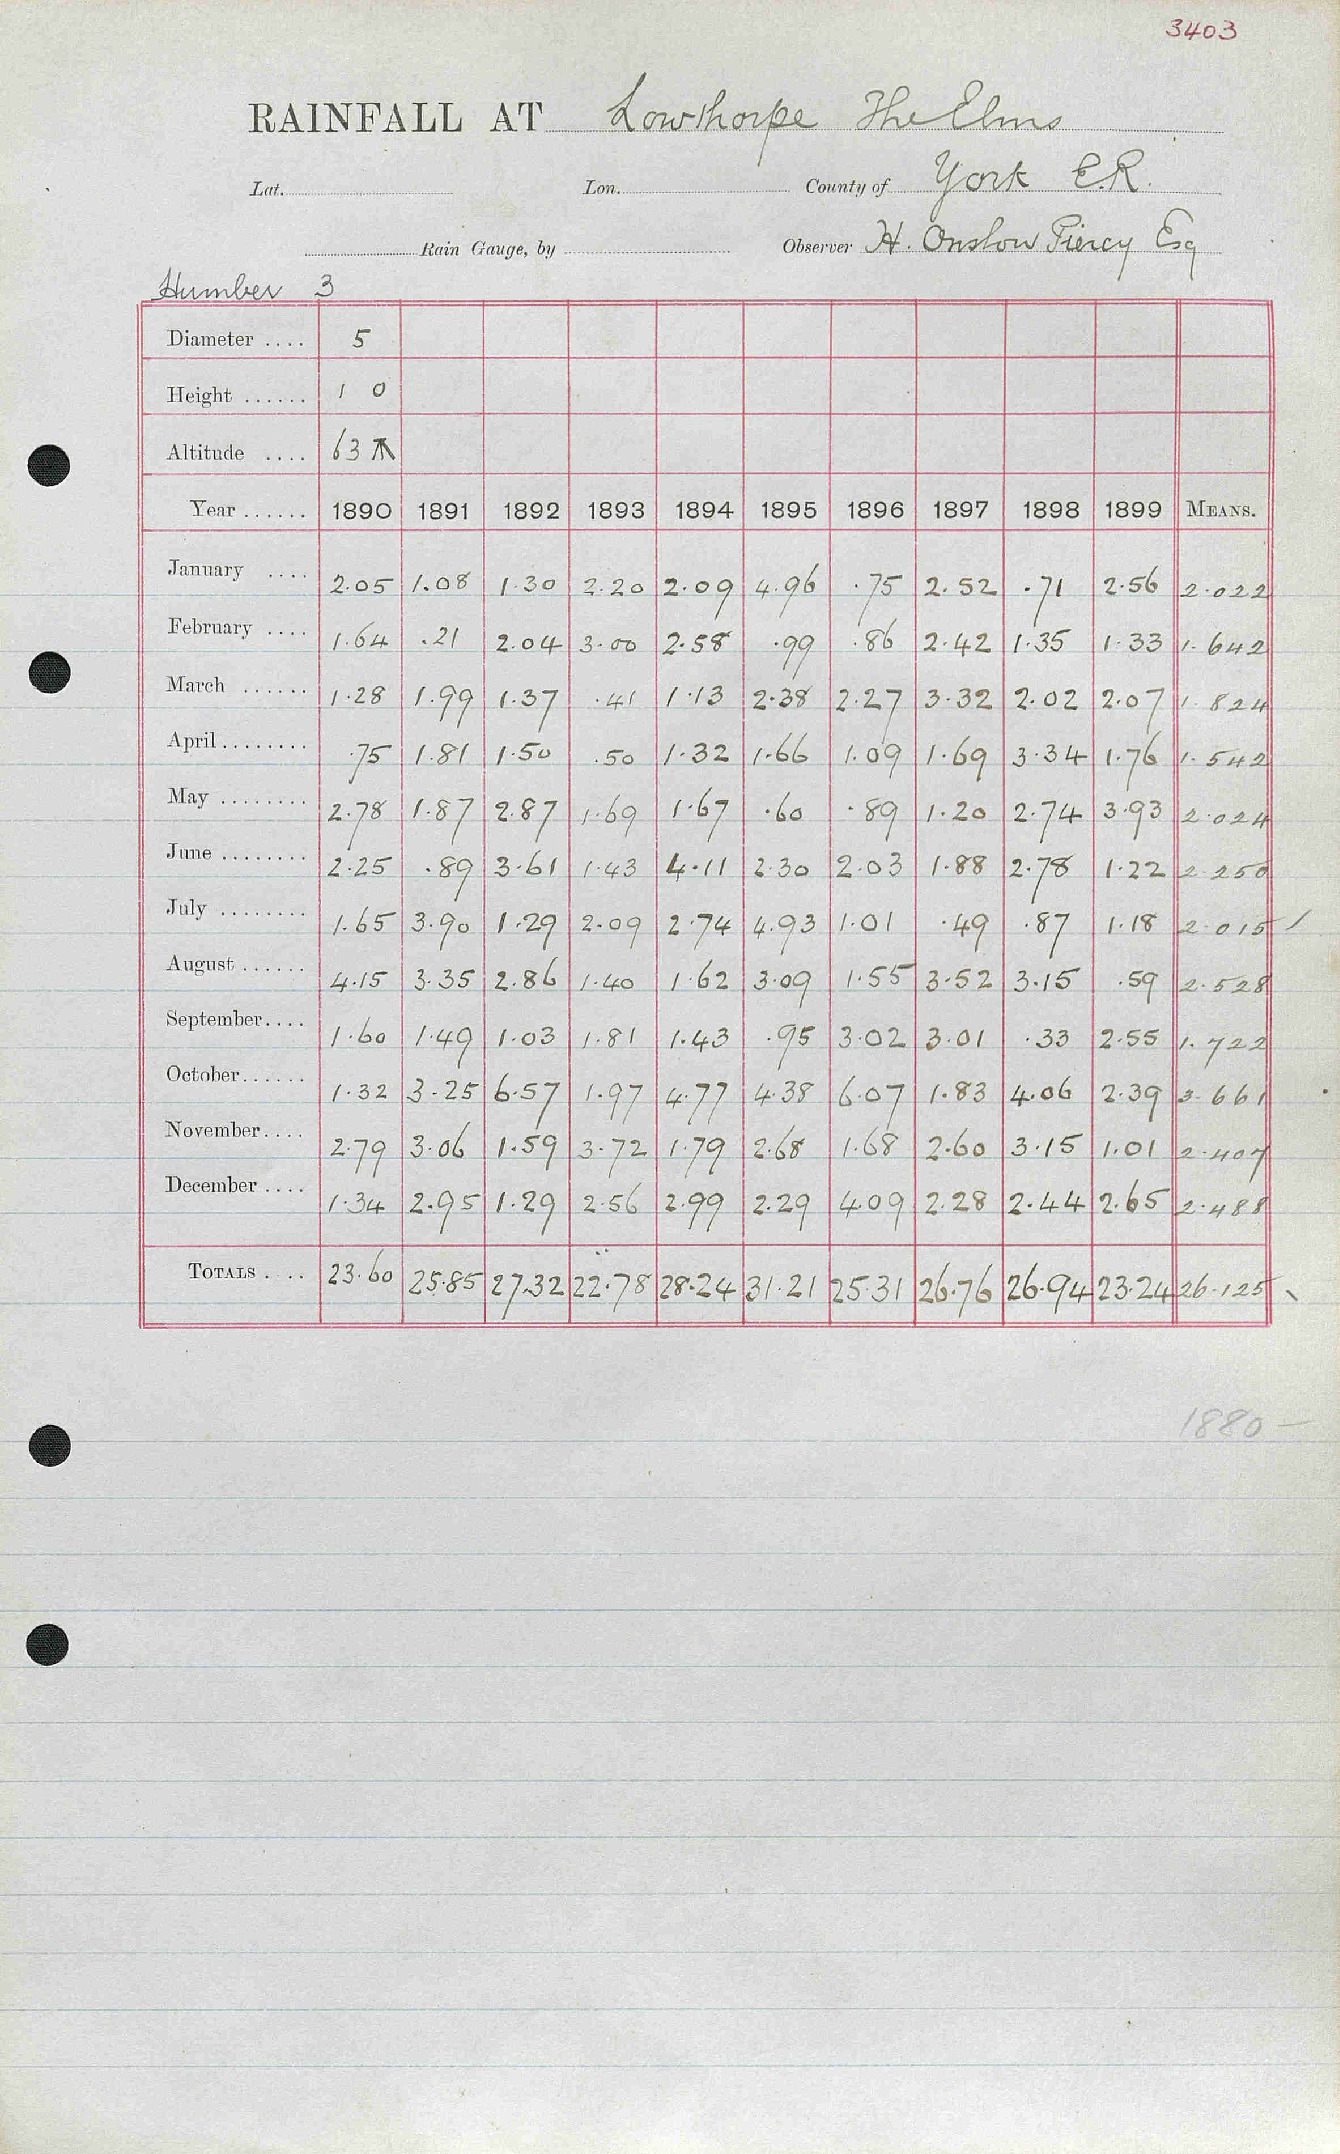 3403
RAINFALL AT Lowthorpe The Elms
Lat. Lon. County of York E.R.
Rain Gauge, by Observer H. Onslow Piercy Esq
Humber 3
Diameter .... 5
Height ...... 1 0
Altitude .... 63
Year ...... 1890 1891 1892 1893 1894 1895 1896 1897 1898 1899 MEANS.
January .... 2.05 1.08 1.30 2.20 2.09 4.96 .75 2.52 .71 2.56 2.022
February .... 1.64 .21 2.04 3.00 2.58 .99 .86 2.42 1.35 1.33 1.642
March ...... 1.28 1.99 1.37 .41 1.13 2.38 2.27 3.32 2.02 2.07 1.824
April ........ .75 1.81 1.50 .50 1.32 1.66 1.09 1.69 3.34 1.76 1.542
May ........ 2.78 1.87 2.87 1.69 1.67 .60 .89 1.20 2.74 3.93 2.024
June ........ 2.25 .89 3.61 1.43 4.11 2.30 2.03 1.88 2.78 1.22 2.250
July ........ 1.65 3.90 1.29 2.09 2.74 4.93 1.01 .49 .87 1.18 2.015 /
August ...... 4.15 3.35 2.86 1.40 1.62 3.09 1.55 3.52 3.15 .59 2.528
September .... 1.60 1.49 1.03 1.81 1.43 .95 3.02 3.01 .33 2.55 1.722
October ...... 1.32 3.25 6.57 1.97 4.77 4.38 6.07 1.83 4.06 2.39 3.661
November .... 2.79 3.06 1.59 3.72 1.79 2.68 1.68 2.60 3.15 1.01 2.407
December .... 1.34 2.95 1.29 2.56 2.99 2.29 4.09 2.28 2.44 2.65 2.488
TOTALS .... 23.60 25.85 27.32 22.78 28.24 31.21 25.31 26.76 26.94 23.24 26.125 \
1880 —